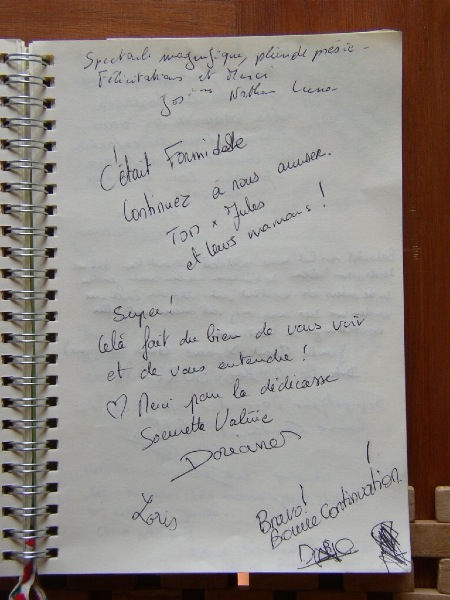 Spectacle magnifique, plein de poésie -
Félicitations et Merci
Nathan Luna
C'était Formidable !
Continuez à nous amuser.
Tom x Jules
et leurs mamans !
Super !
Celà fait du bien de vous voir
et de vous entendre !
♡ Merci pour la dédicasse
Soeurette Valérie
Doriane
Loris
Bravo !
Bonne Continuation !